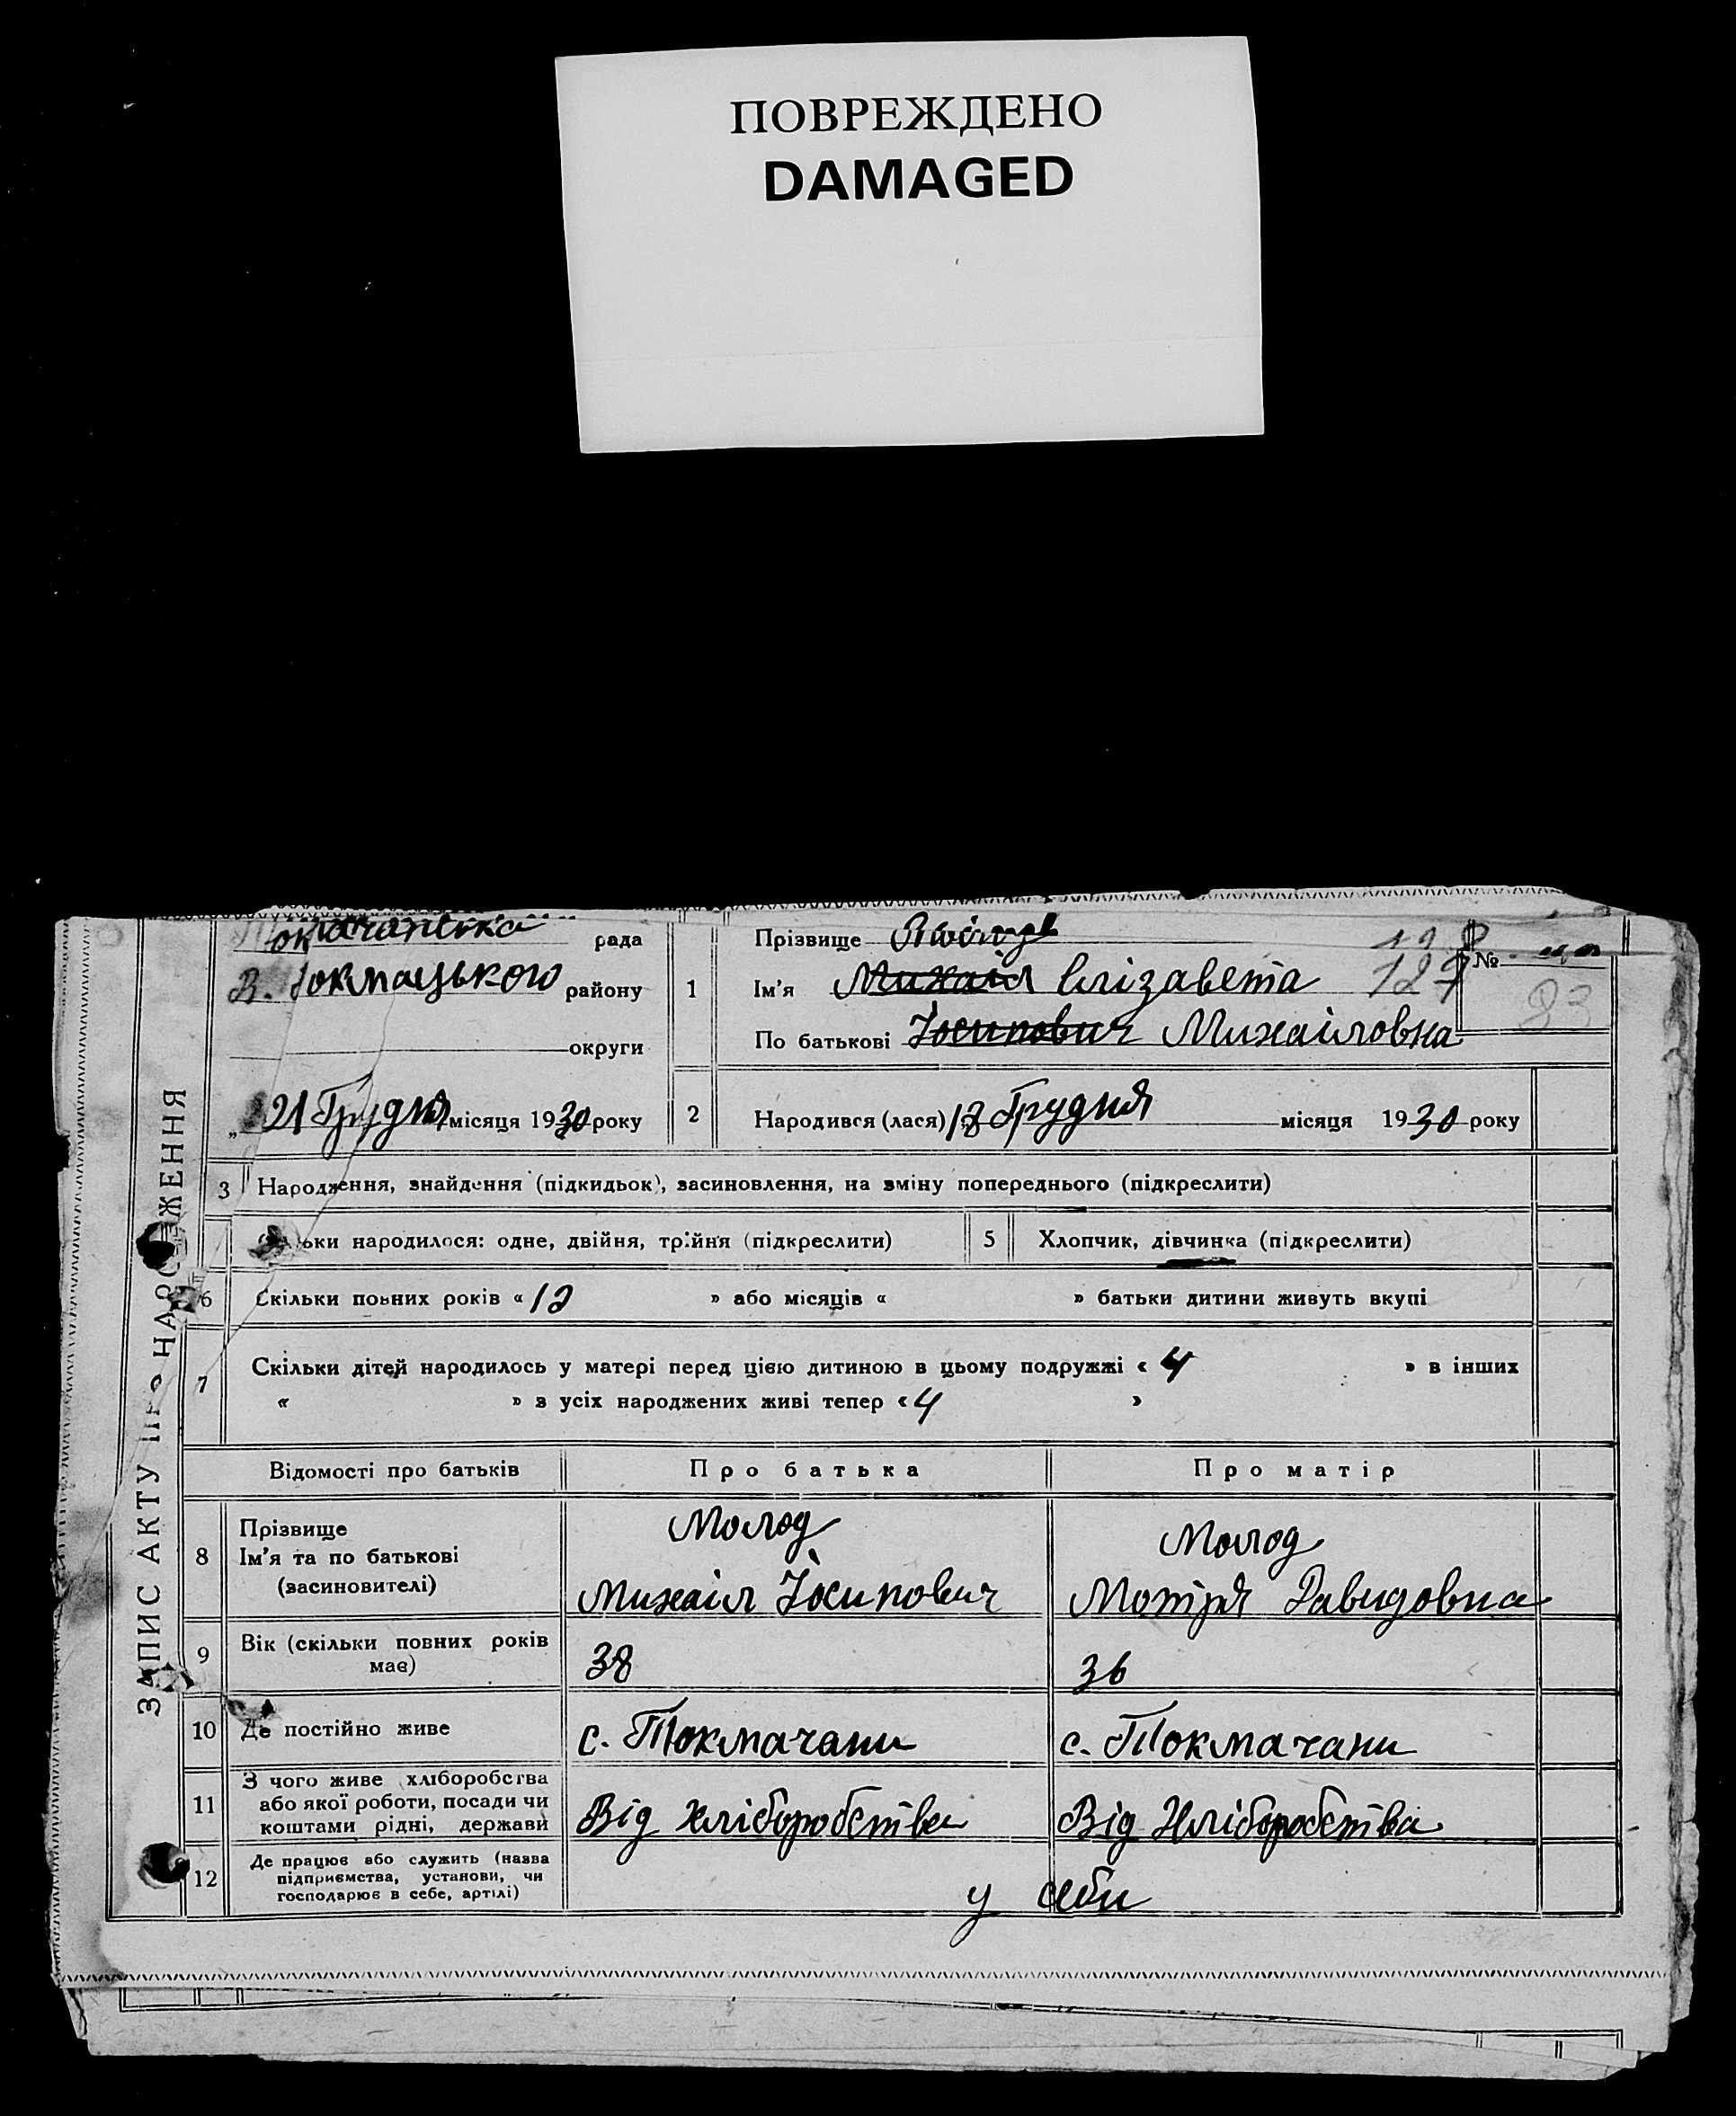 ПОВРЕЖДЕНО
DAMAGED
ЗАПИС АКТУ ПРО НАРОДЖЕННЯ
Токмачанська рада
В. Токмацького району
округи
„ 21 Грудня місяця 1930 року
1 Прізвище
Ім'я Михаіл Єлізавета 127
По батькові Йосипович Михаіловна
№
83
2 Народився (лася) 18 Грудня місяця 1930 року
3 Народження, знайдення (підкидьок), засиновлення, на зміну попереднього (підкреслити)
Скільки народилося: одне, двійня, трійня (підкреслити)
5 Хлопчик, дівчинка (підкреслити)
6 Скільки повних років « 12 » або місяців « » батьки дитини живуть вкупі
7 Скільки дітей народилось у матері перед цією дитиною в цьому подружжі « 4 » в інших
« » з усіх народжених живі тепер « 4 »
Відомості про батьків Про батька Про матір
8 Прізвище
Ім'я та по батькові
(засиновителі)
Молод
Михаіл Йосипович
Молод
Мотря Давидовна
9 Вік (скільки повних років
має)
38 36
10 Де постійно живе с. Токмачани с. Токмачани
11 З чого живе хліборобства
або якої роботи, посади чи
коштами рідні, держави
Від хліборобства Від Хліборобства
12 Де працює або служить (назва
підприємства, установи, чи
господарює в себе, артілі)
у себи